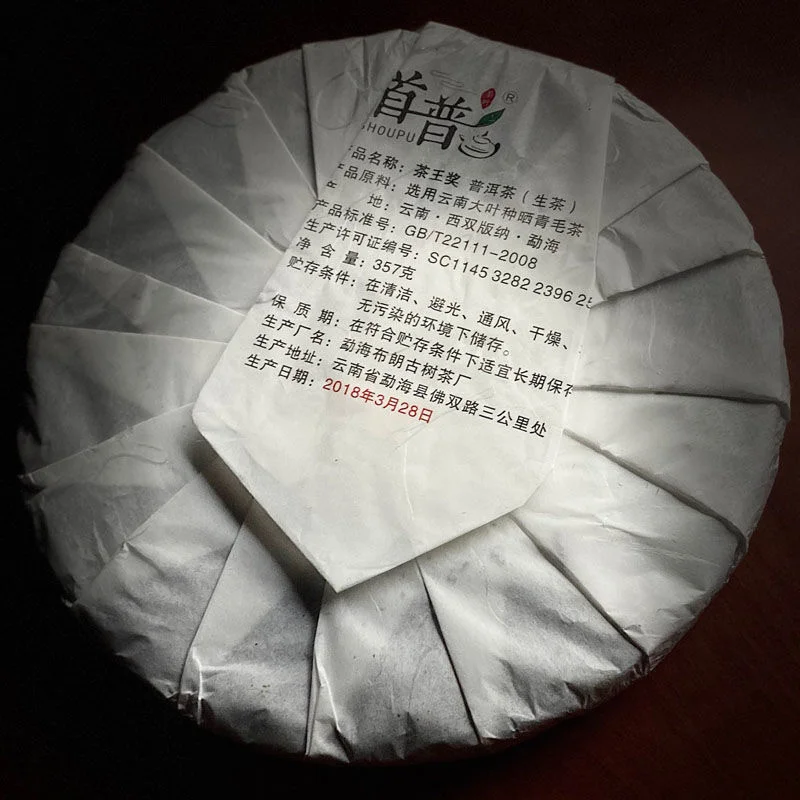 首普®
SHOUPU
产品名称：茶王奖 普洱茶（生茶）
产品原料：选用云南大叶种晒青毛茶
产 地：云南·西双版纳·勐海
产品标准号：GB/T22111-2008
生产许可证编号：SC1145 3282 2396 25
净 含 量：357克
贮存条件：在清洁、避光、通风、干燥、
无污染的环境下储存。
保 质 期：在符合贮存条件下适宜长期保存
生产厂名：勐海布朗古树茶厂
生产地址：云南省勐海县佛双路三公里处
生产日期：2018年3月28日